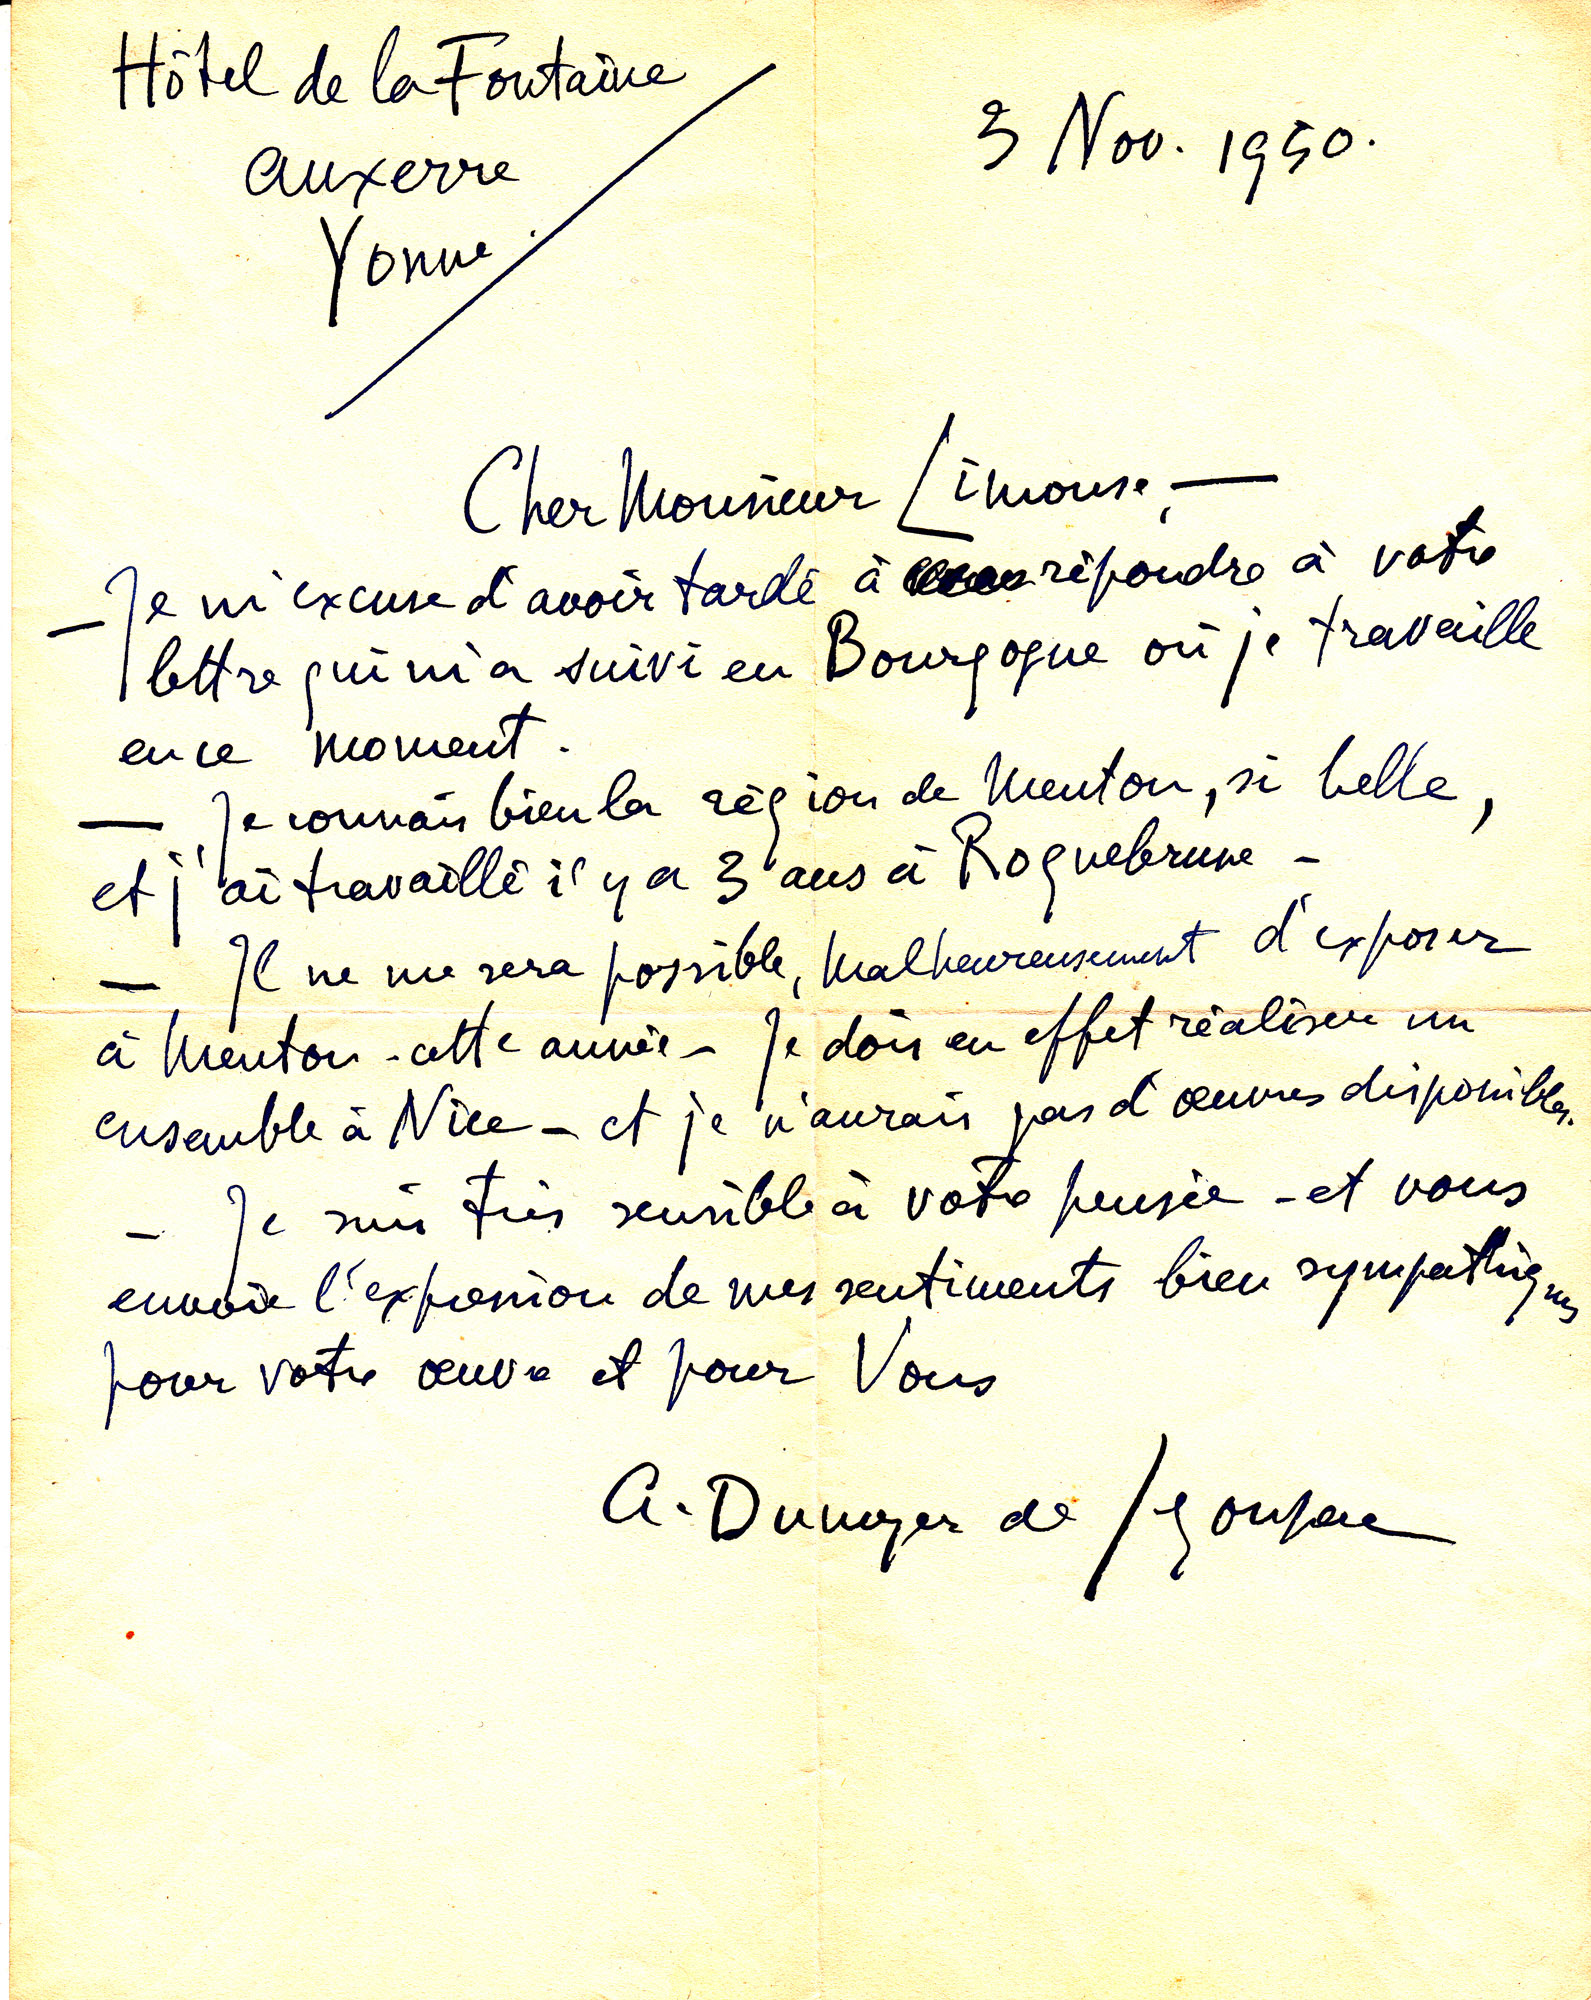 Hôtel de la Fontaine
Auxerre
Yonne
3 Nov. 1950.
Cher Monsieur Limouse, —
— Je m'excuse d'avoir tardé à répondre à votre
lettre qui m'a suivi en Bourgogne où je travaille
en ce moment.
— Je connais bien la région de Menton, si belle,
et j'ai travaillé il y a 3 ans à Roquebrune -
— Il ne me sera possible, malheureusement d'exposer
à Menton - cette année - Je dois en effet réaliser un
ensemble à Nice - et je n'aurais pas d'œuvres disponibles.
- Je suis très sensible à votre pensée - et vous
envoie l'expression de mes sentiments bien sympathiques
pour votre œuvre et pour Vous
A. Dunoyer de Segonzac